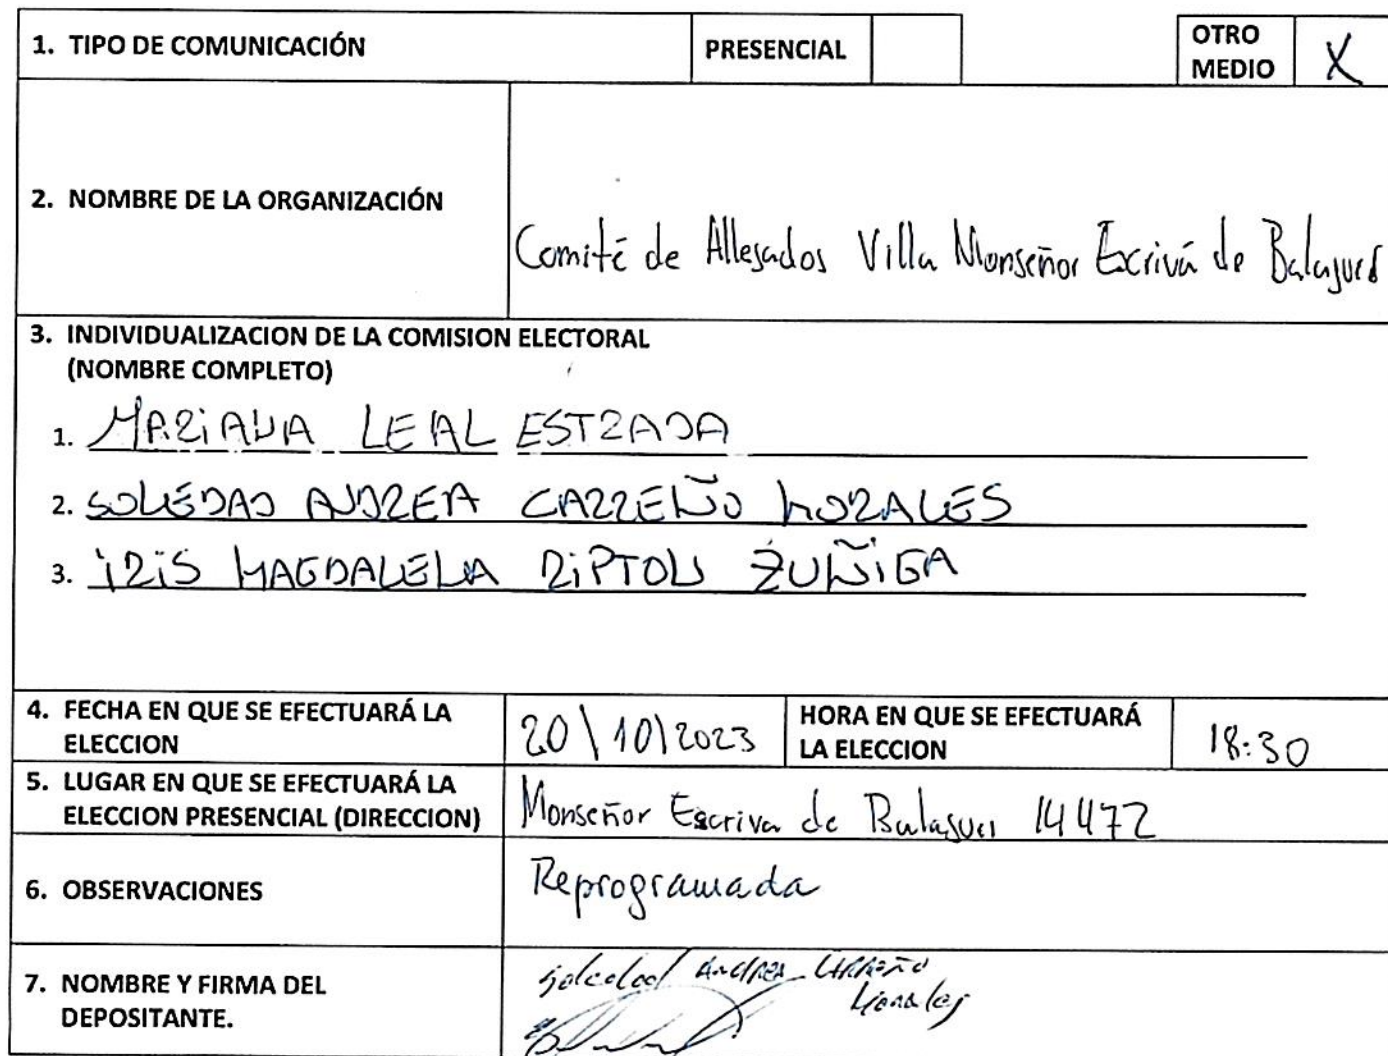 1. TIPO DE COMUNICACIÓN PRESENCIAL OTRO MEDIO X
2. NOMBRE DE LA ORGANIZACIÓN Comité de Allegados Villa Monseñor Escrivá de Balaguer
3. INDIVIDUALIZACION DE LA COMISION ELECTORAL
(NOMBRE COMPLETO)
1. MARIANA LEAL ESTRADA
2. SOLEDAD ANDREA CARREÑO MORALES
3. IRIS MAGDALENA RIPTON ZUÑIGA
4. FECHA EN QUE SE EFECTUARÁ LA ELECCION 20\10\2023 HORA EN QUE SE EFECTUARÁ LA ELECCION 18:30
5. LUGAR EN QUE SE EFECTUARÁ LA ELECCION PRESENCIAL (DIRECCION) Monseñor Escriva de Balaguer 14472
6. OBSERVACIONES Reprogramada
7. NOMBRE Y FIRMA DEL DEPOSITANTE. Soledad Andrea Carreño Morales